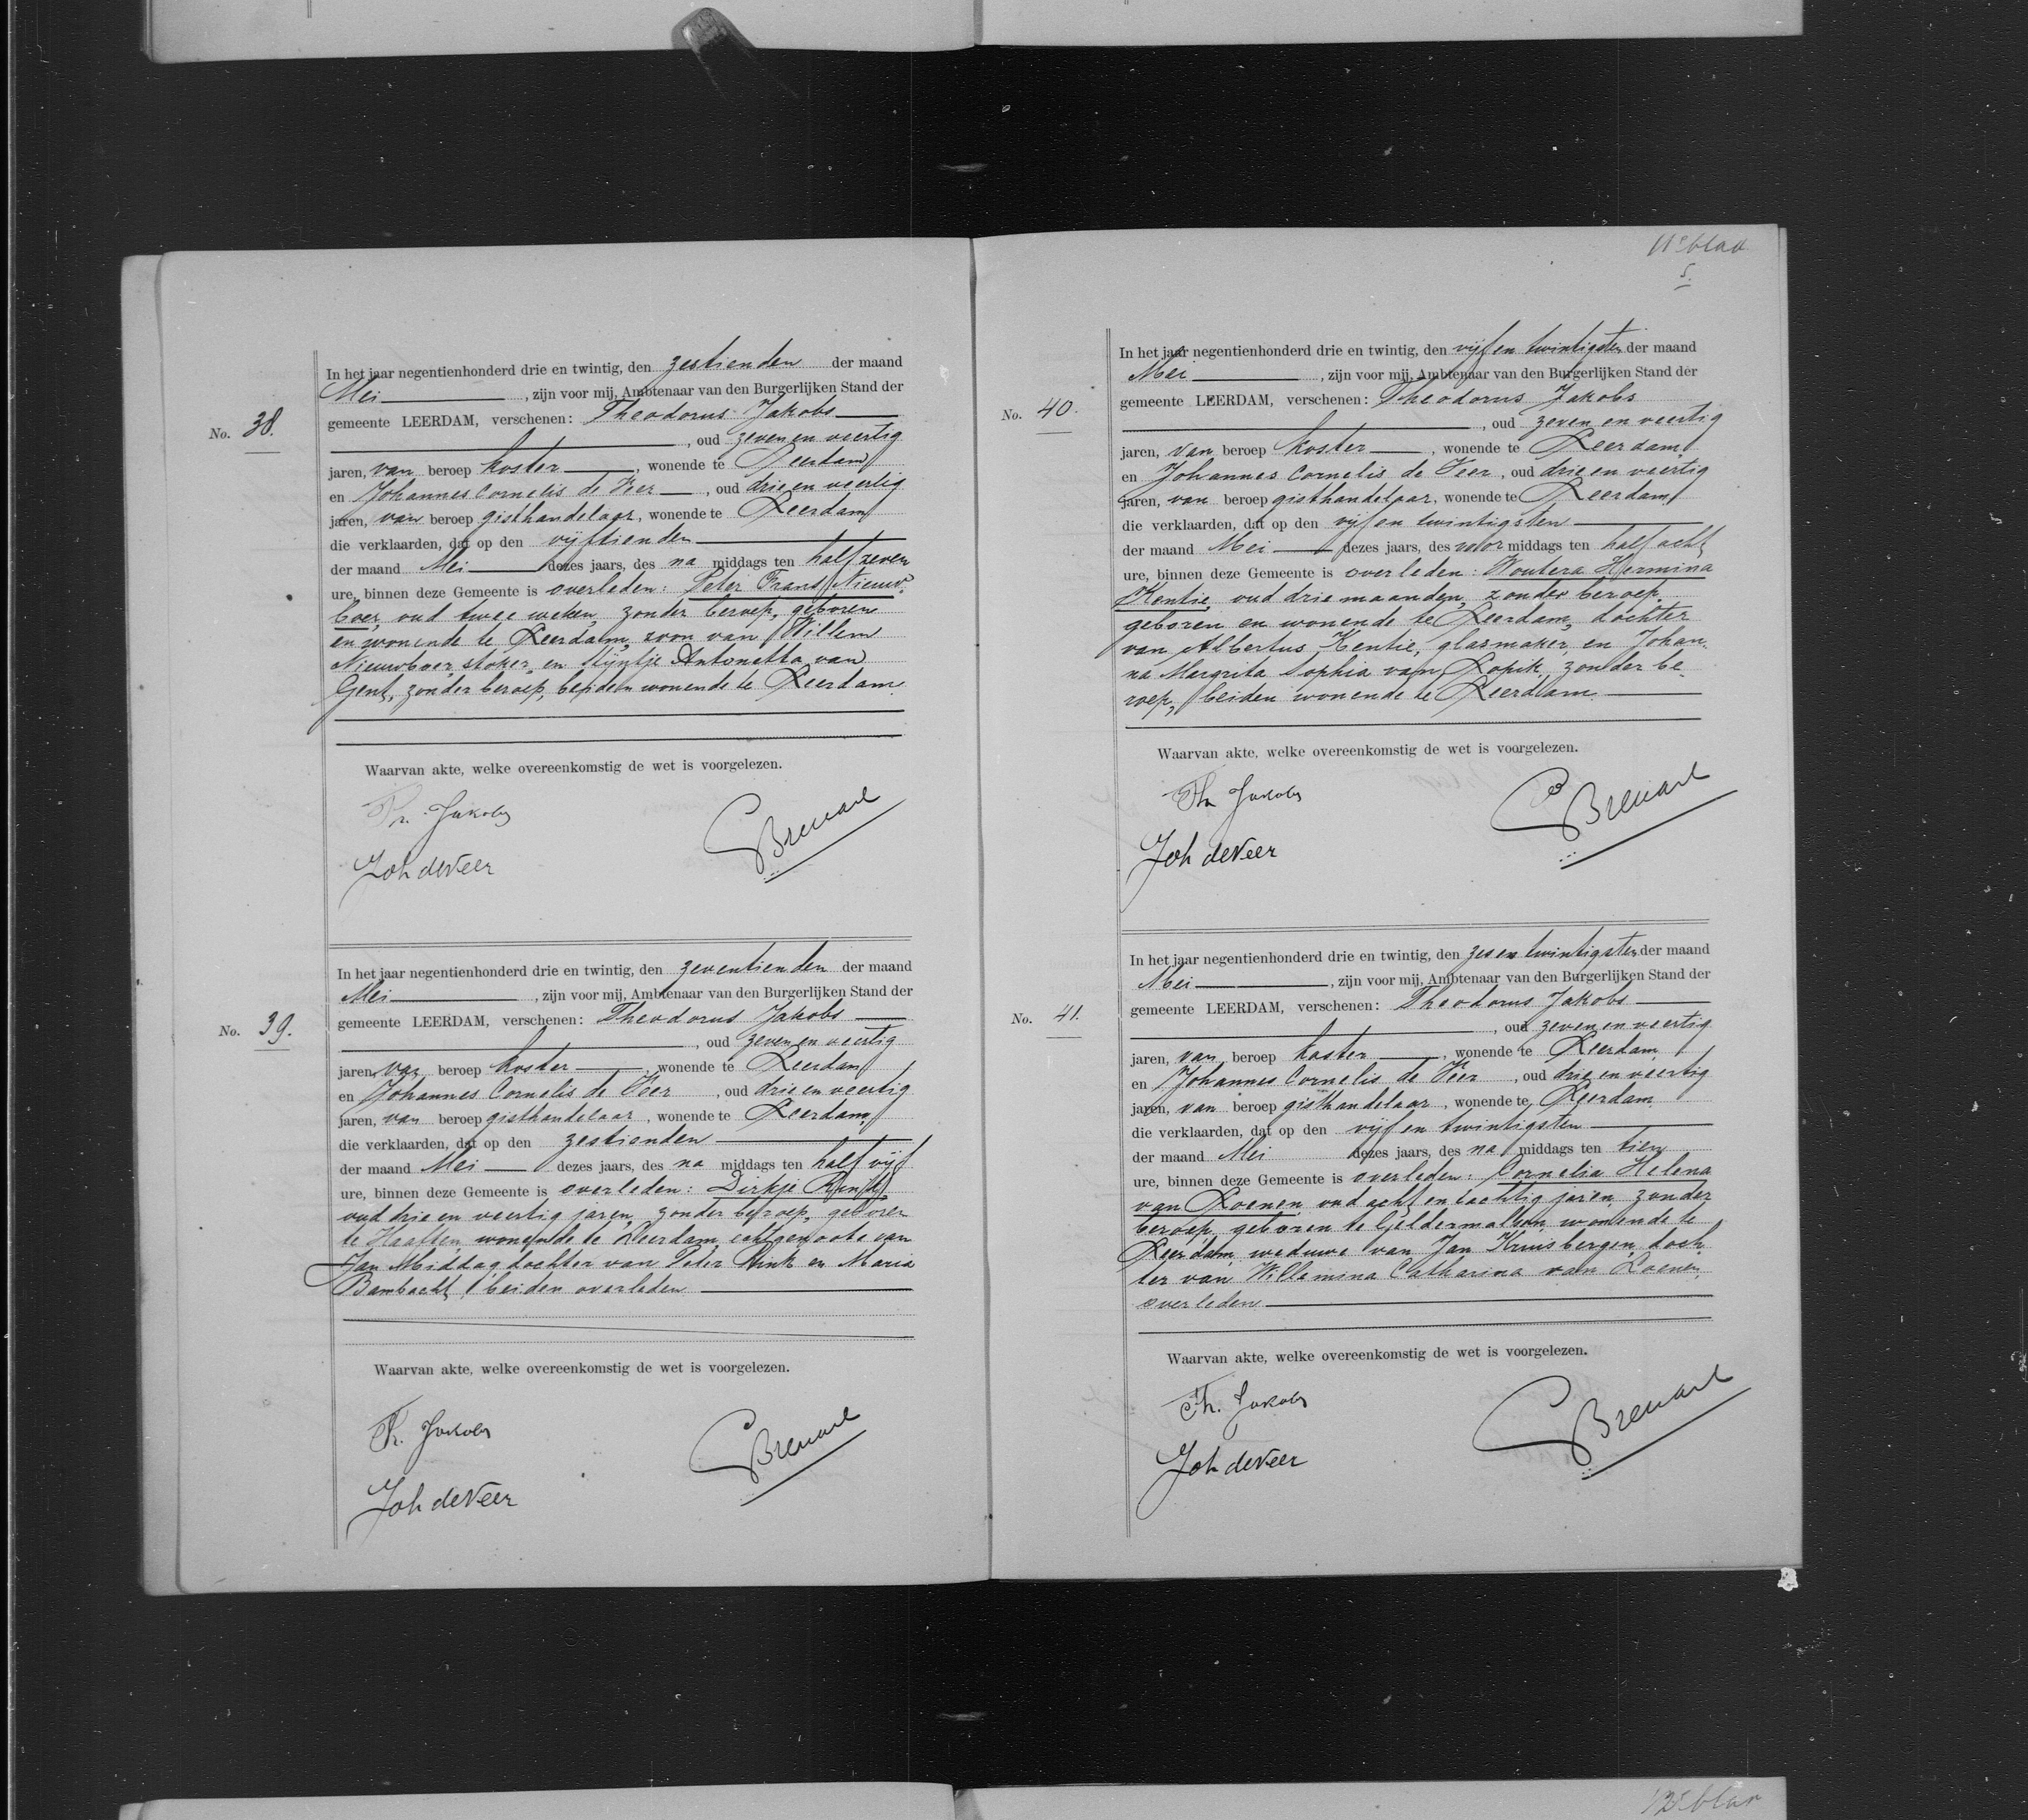 No. 38.
In het jaar negentienhonderd drie en twintig, den zestienden der maand
Mei, zijn voor mij, Ambtenaar van den Burgerlijken Stand der
gemeente LEERDAM, verschenen: Theodorus Jakobs
, oud zeven en veertig
jaren, van beroep koster, wonende te Leerdam
en Johannes Cornelis de Veer, oud drie en veertig
jaren, van beroep gisthandelaar, wonende te Leerdam
die verklaarden, dat op den vijftienden
der maand Mei dezes jaars, des na middags ten half zeven
ure, binnen deze Gemeente is overleden: Peter Frans Nieuw-
boer, oud twee weken, zonder beroep, geboren
en wonende te Leerdam, zoon van Willem
Nieuwboer, stoker, en Stijntje Antonetta van
Gent, zonder beroep, beiden wonende te Leerdam.
Waarvan akte, welke overeenkomstig de wet is voorgelezen.
Th. Jakobs
Joh de Veer
No. 39.
In het jaar negentienhonderd drie en twintig, den zeventienden der maand
Mei, zijn voor mij, Ambtenaar van den Burgerlijken Stand der
gemeente LEERDAM, verschenen: Theodorus Jakobs
, oud zeven en veertig
jaren, van beroep koster, wonende te Leerdam
en Johannes Cornelis de Veer, oud drie en veertig
jaren, van beroep gisthandelaar, wonende te Leerdam,
die verklaarden, dat op den zestienden
der maand Mei dezes jaars, des na middags ten half vijf
ure, binnen deze Gemeente is overleden: Dirkje Rink,
oud drie en veertig jaren, zonder beroep, geboren
te Haaften, wonende te Leerdam, echtgenoote van
Jan Middag, dochter van Peter Rink en Maria
Bambacht, beiden overleden
Waarvan akte, welke overeenkomstig de wet is voorgelezen.
Th. Jakobs
Joh de Veer
11e blad
No. 40.
In het jaar negentienhonderd drie en twintig, den vijf en twintigsten der maand
Mei, zijn voor mij, Ambtenaar van den Burgerlijken Stand der
gemeente LEERDAM, verschenen: Theodorus Jakobs
, oud zeven en veertig
jaren, van beroep koster, wonende te Leerdam,
en Johannes Cornelis de Veer, oud drie en veertig
jaren, van beroep gisthandelaar, wonende te Leerdam
die verklaarden, dat op den vijf en twintigsten
der maand Mei dezes jaars, des voor middags ten half acht
ure, binnen deze Gemeente is overleden: Woutera Hermina
Kentie, oud drie maanden, zonder beroep,
geboren en wonende te Leerdam, dochter
van Albertus Kentie, glasmaker, en Johan-
na Margrita Sophia van Kopik, zonder be-
roep, beiden wonende te Leerdam.
Waarvan akte, welke overeenkomstig de wet is voorgelezen.
Th Jakobs
Joh de Veer
No. 41.
In het jaar negentienhonderd drie en twintig, den zes en twintigsten der maand
Mei, zijn voor mij, Ambtenaar van den Burgerlijken Stand der
gemeente LEERDAM, verschenen: Theodorus Jakobs
, oud zeven en veertig
jaren, van beroep koster, wonende te Leerdam
en Johannes Cornelis de Veer, oud drie en veertig
jaren, van beroep gisthandelaar, wonende te Leerdam
die verklaarden, dat op den vijf en twintigsten
der maand Mei dezes jaars, des na middags ten tien
ure, binnen deze Gemeente is overleden: Cornelia Helena
van Loenen, oud acht en tachtig jaren, zonder
beroep, geboren te Geldermalsen, wonende te
Leerdam, weduwe van Jan Kruisbergen, doch-
ter van Willemina Catharina van Loenen,
overleden
Waarvan akte, welke overeenkomstig de wet is voorgelezen.
Th. Jakobs
Joh de Veer
12e blad